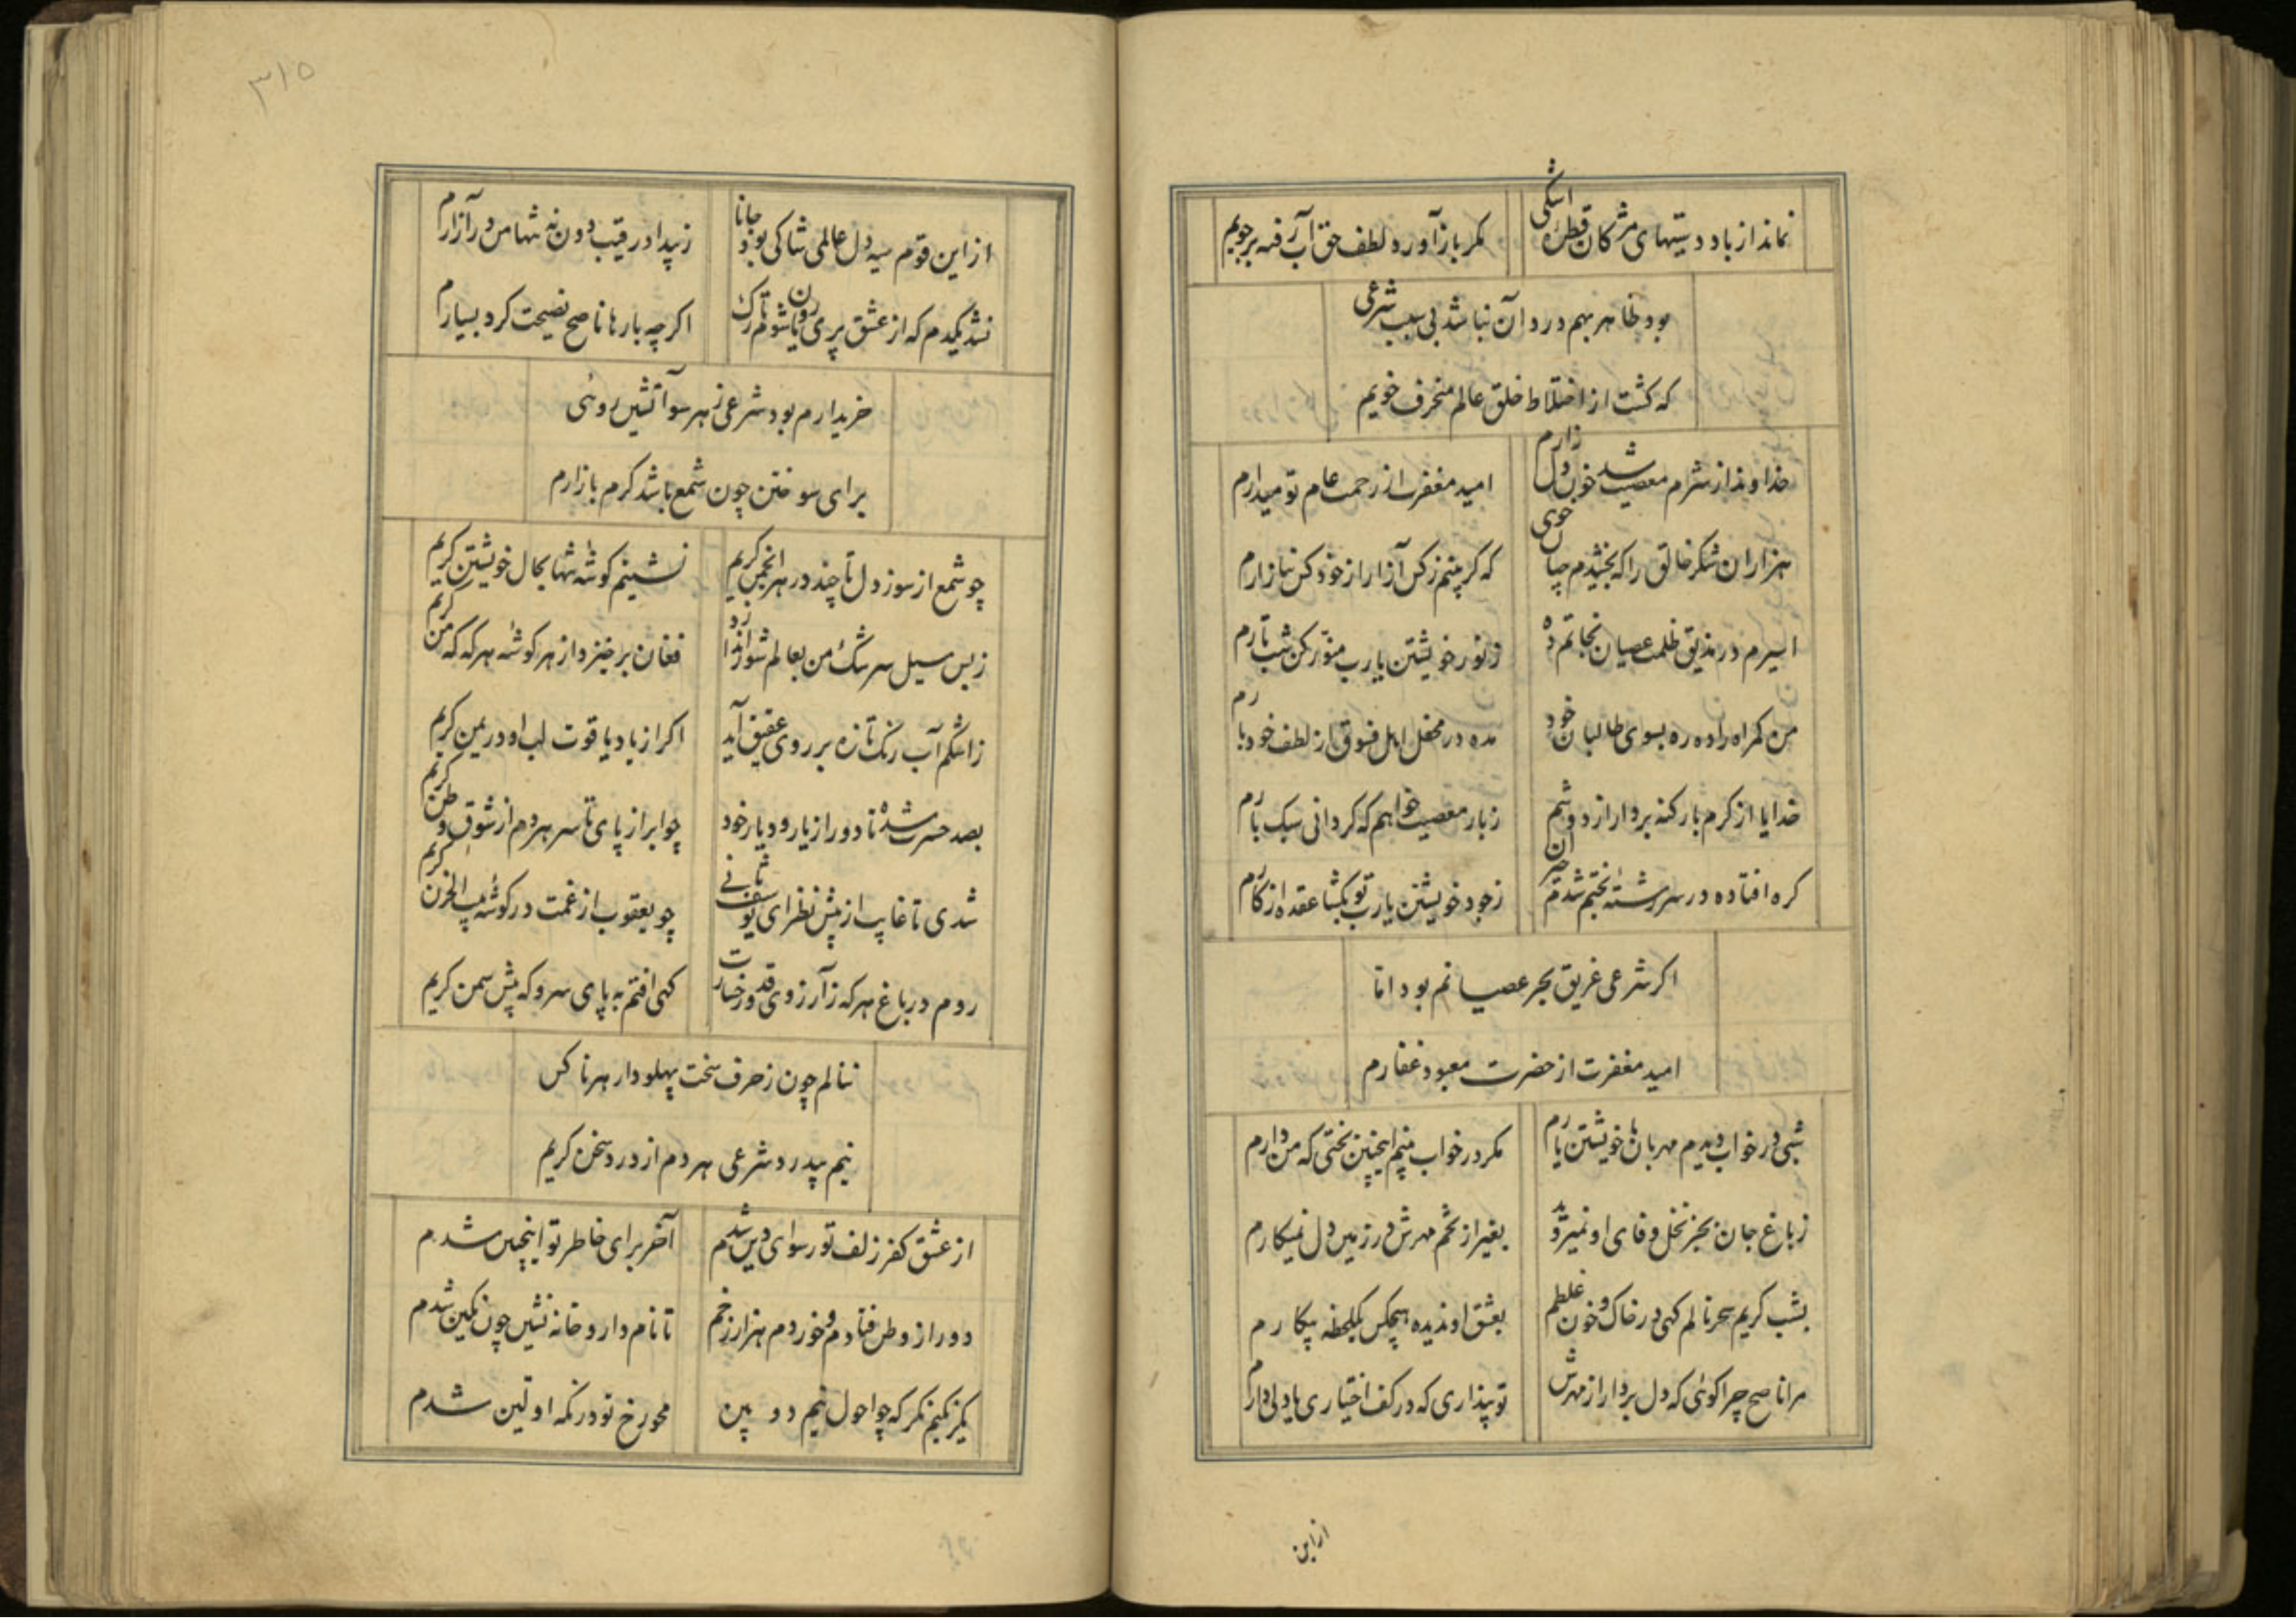 نماند از باد دستیهای مژکان قطرهٔ اشکی
مکر باز آورد لطف حق آب رفته بر جویم
بود ظاهر بهم درد آن نباشد بی سبب شرعی
که کشت از اختلاط خلق عالم منحرف خویم
خداوندا ز شرم معصیت خون شد دل زارم
امید مغفرت از رحمت عام تو میدارم
هزاران شکر خالق را که بخشیدم چنان خوی
که کر بینم ز کس آزار از خود کس نیازارم
اسیرم در مذیق ظلمت عصیان نجاتم ده
ز نور خویشتن یارب منور کن شب تارم
من کمراه را ده ره بسوی طالبان خود
مده در محفل اهل فسوق از لطف خود بارم
خدایا از کرم بار کنه بردار از دوشم
ز بار معصیت خواهم که کردانی سبک بارم
کره افتاده در سر رشتهٔ بختم شدم حیران
ز جود خویشتن یارب تو بکشا عقده از کارم
اکر شرعی غریق بحر عصیانم بود اما
امید مغفرت از حضرت معبود غفارم
شبی در خواب دیدم مهربان با خویشتن یارم
مکر در خواب بینم اینچنین بختی که من دارم
ز باغ جان بجز نخل وفای او نمیروید
بغیر از تخم مهرش در زمین دل نمیکارم
بشب کریم سحر نالم کهی در خاک و خون غلطم
بعشق او ندیده هیچکس یکلحظه بیکارم
مرا ناصح چرا کوئی که دل بردار از مهرش
تو پنداری که در کف اختیاری با دل دارم
از این
۳۱۵
از این قوم سیه دل عالمی شاکی بود جانا
ز بیداد رقیب دون نه تنها من در آزارم
نشد یکدم که از عشق پری رویان شوم تارک
اکرچه بارها ناصح نصیحت کرد بسیارم
خریدارم بود شرعی ز هر سو آتشین روئی
برای سوختن چون شمع باشد کرم بازارم
چو شمع از سوز دل تا چند در هر انجمن کریم
نشینم کوشهٔ تنها بحال خویشتن کریم
ز بس سیل سرشک من بعالم شور اندازد
فغان بر خیزد از هر کوشهٔ هر که که من کریم
ز اشکم آب رنک تازه بر روی عقیق آید
اکر از یاد یاقوت لب او در یمن کریم
بصد حسرت شده تا دور از یار و دیار خود
چو ابر از پای تا سر هر دم از شوق وطن کریم
شدی تا غایب از پیش نظر ای یوسف ثانی
چو یعقوب از غمت در کوشهٔ بیت الحزن کریم
روم در باغ هر که ز آرزوی قد و رخسارت
کهی افتم به پای سرو که پیش سمن کریم
ننالم چون ز حرف سخت پهلودار هر ناکس
نیم بیدرد شرعی هر دم از درد سخن کریم
از عشق کفر زلف تو رسوای دین شدم
آخر برای خاطر تو اینچنین شدم
دور از وطن فتادم و خوردم هزار زخم
تا نام دار و خانه نشین چون نکین شدم
یکرنکیم نکر که چو احول نیم دو بین
محو رخ تو در نکه اولین شدم